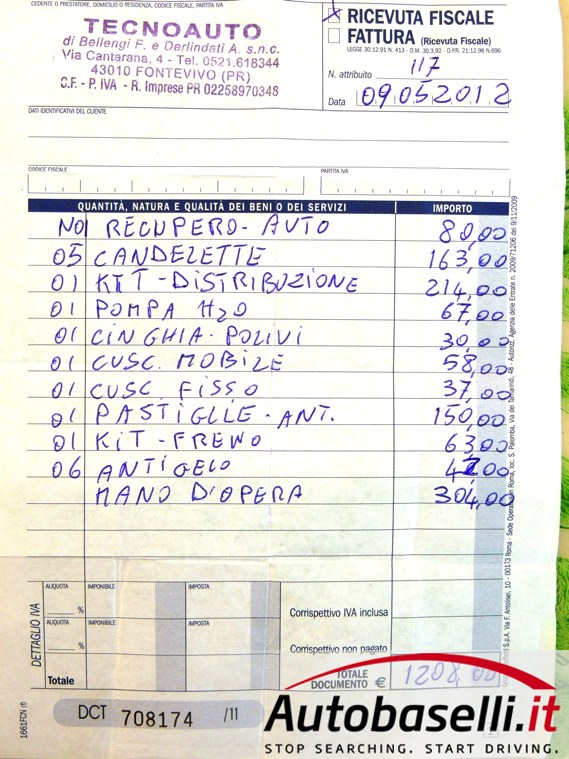 CEDENTE O PRESTATORE, DOMICILIO O RESIDENZA, CODICE FISCALE, PARTITA IVA
TECNOAUTO
di Bellengi F. e Derlindati A. s.n.c.
Via Cantarana, 4 - Tel. 0521.618344
43010 FONTEVIVO (PR)
C.F. - P. IVA - R. Imprese PR 02258970348
X RICEVUTA FISCALE
FATTURA (Ricevuta Fiscale)
LEGGE 30.12.91 N. 413 - D.M. 30.3.92 - D.P.R. 21.12.96 N.696
N. attribuito 117
Data 09.05.2012
DATI IDENTIFICATIVI DEL CLIENTE
CODICE FISCALE PARTITA IVA
QUANTITÀ, NATURA E QUALITÀ DEI BENI O DEI SERVIZI IMPORTO
N01 RECUPERO - AUTO 80,00
05 CANDELETTE 163,00
01 KIT - DISTRIBUZIONE 214,00
01 POMPA H2O 67,00
01 CINGHIA - POLIVI 30,00
01 CUSC. MOBILE 58,00
01 CUSC. FISSO 37,00
01 PASTIGLIE - ANT. 150,00
01 KIT - FRENO 63,00
06 ANTIGELO 42,00
MANO D'OPERA 304,00
DETTAGLIO IVA
ALIQUOTA IMPONIBILE IMPOSTA
%
Corrispettivo IVA inclusa
ALIQUOTA IMPONIBILE IMPOSTA
%
Corrispettivo non pagato
Totale
TOTALE DOCUMENTO € 1208,00
1661FCN (f)
DCT 708174 /11
Autobaselli.it
STOP SEARCHING. START DRIVING.